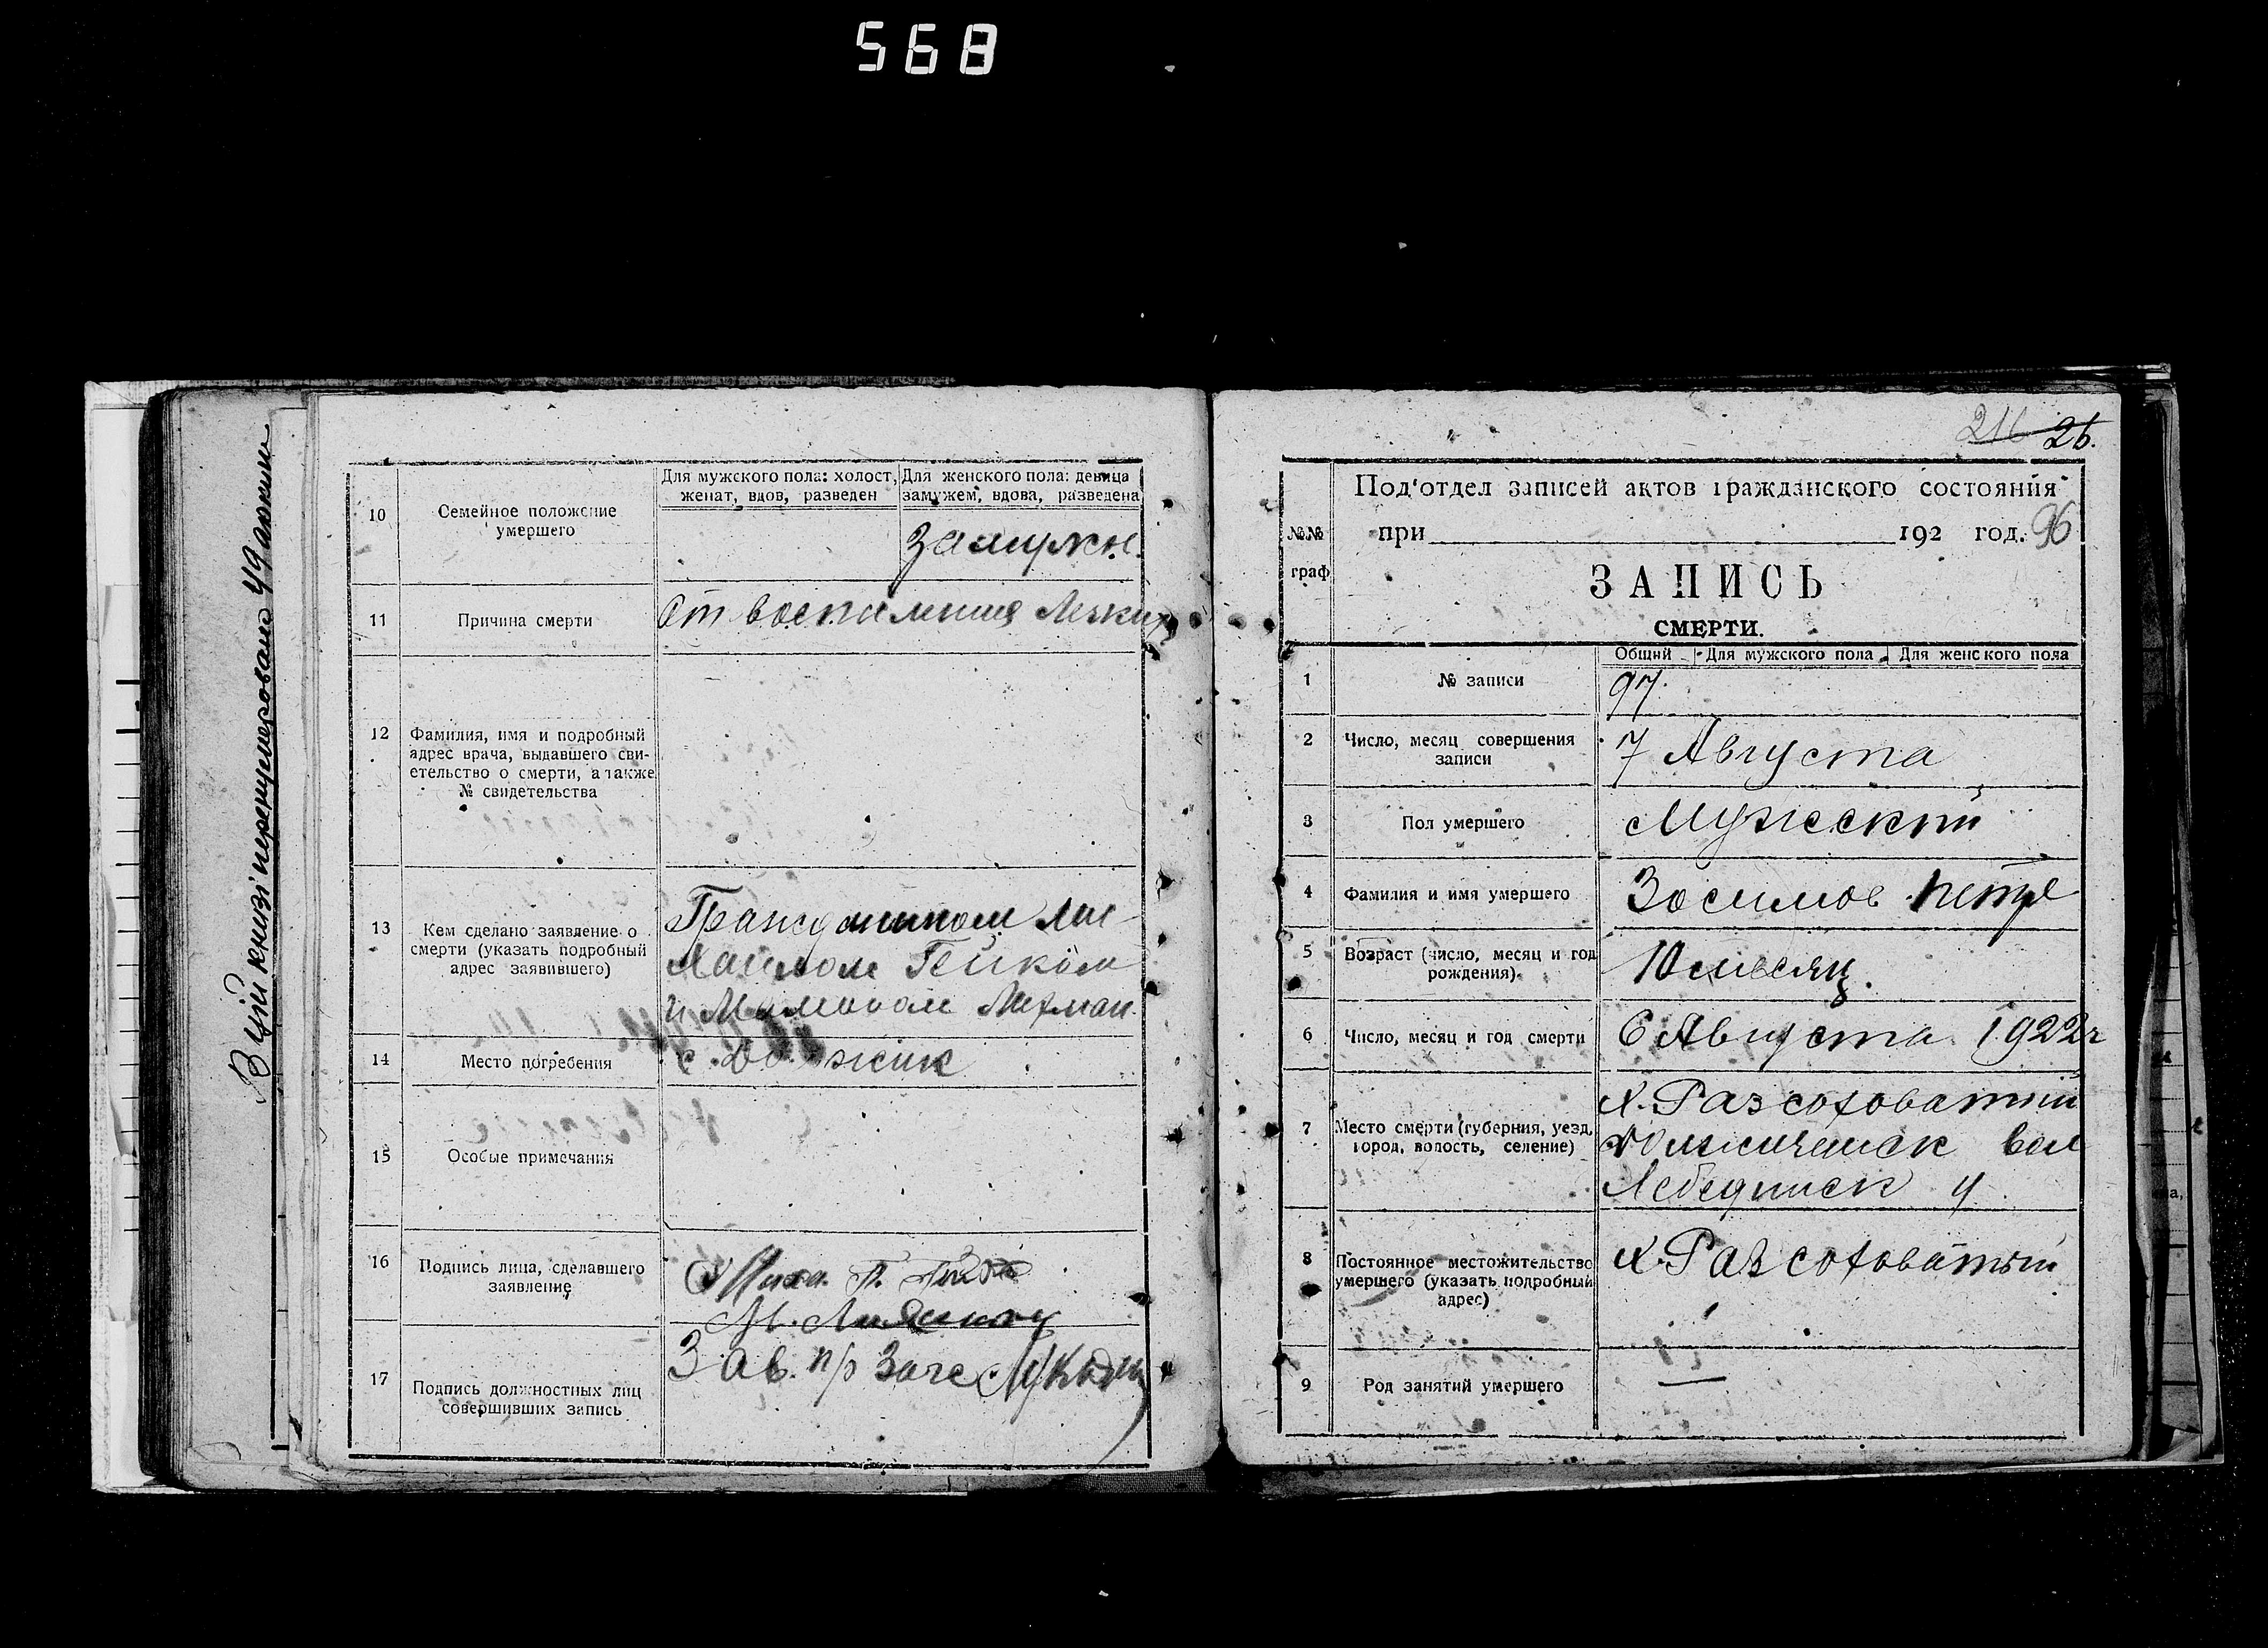 568
В цій книзі перенумеровано 49 аркуш
10
Семейное положение
умершего
Для мужского пола: холост,
женат, вдов, разведен
Для женского пола: девица
замужем, вдова, разведена
Замужн.
11
Причина смерти
От воспаления Легких
12
Фамилия, имя и подробный
адрес врача, выдавшего сви-
етельство о смерти, а также
№ свидетельства
13
Кем сделано заявление о
смерти (указать подробный
адрес заявившего)
Гражданином Ми-
14
Место погребения
с. Должик
15
Особые примечания
16
Подпись лица, сделавшего
заявление
17
Подпись должностных лиц
совершивших запись
Зав. п/о Загс
216 26.
Под'отдел записей актов гражданского состояния
№№
граф
при 192 год. 96
ЗАПИСЬ
СМЕРТИ.
Общий Для мужского пола Для женского пола
1
№ записи
97
2
Число, месяц совершения
записи
7 Августа
3
Пол умершего
Мужеский
4
Фамилия и имя умершего
Зосимов Петр
5
Возраст (число, месяц и год
рождения)
10 месяц.
6
Число, месяц и год смерти
6 Августа 1922 г
7
Место смерти (губерния, уезд,
город, волость, селение)
х. Разсоховатый
Должичанск вол
Лебединск у
8
Постоянное местожительство
умершего (указать подробный
адрес)
х. Разсоховатый
9
Род занятий умершего
—